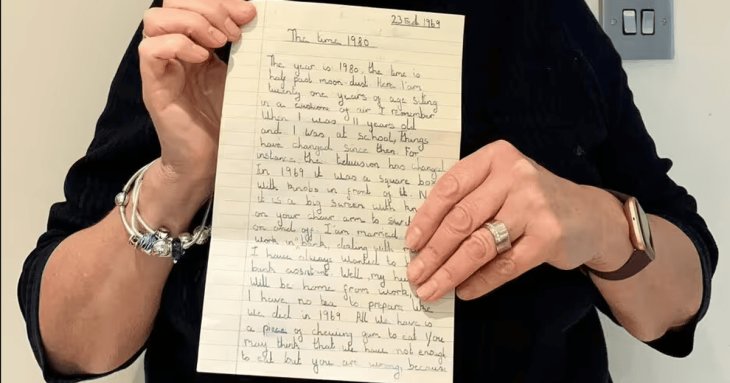 23rd Oct 1969
The time 1980
The year is 1980, the time is
half past moon-dust. Here I am
twenty one years of age siting
in a cushion of air I remember
When I was 11 years old
and I was at school, things
have changed since then. For
instance, the television has changed
In 1969 it was a square box
with knobs in front of it. N
it is a big screen with kn
on your chair arm to
on and off. I am married
work in bank, dealing with
I have always wanted to
bank assistant. Well, my hu
will be home from work,
I have no tea to prepare like
we did in 1969. All we have is
a piece of chewing gum to eat. You
may think that we have not enough
to eat but you are wrong, because